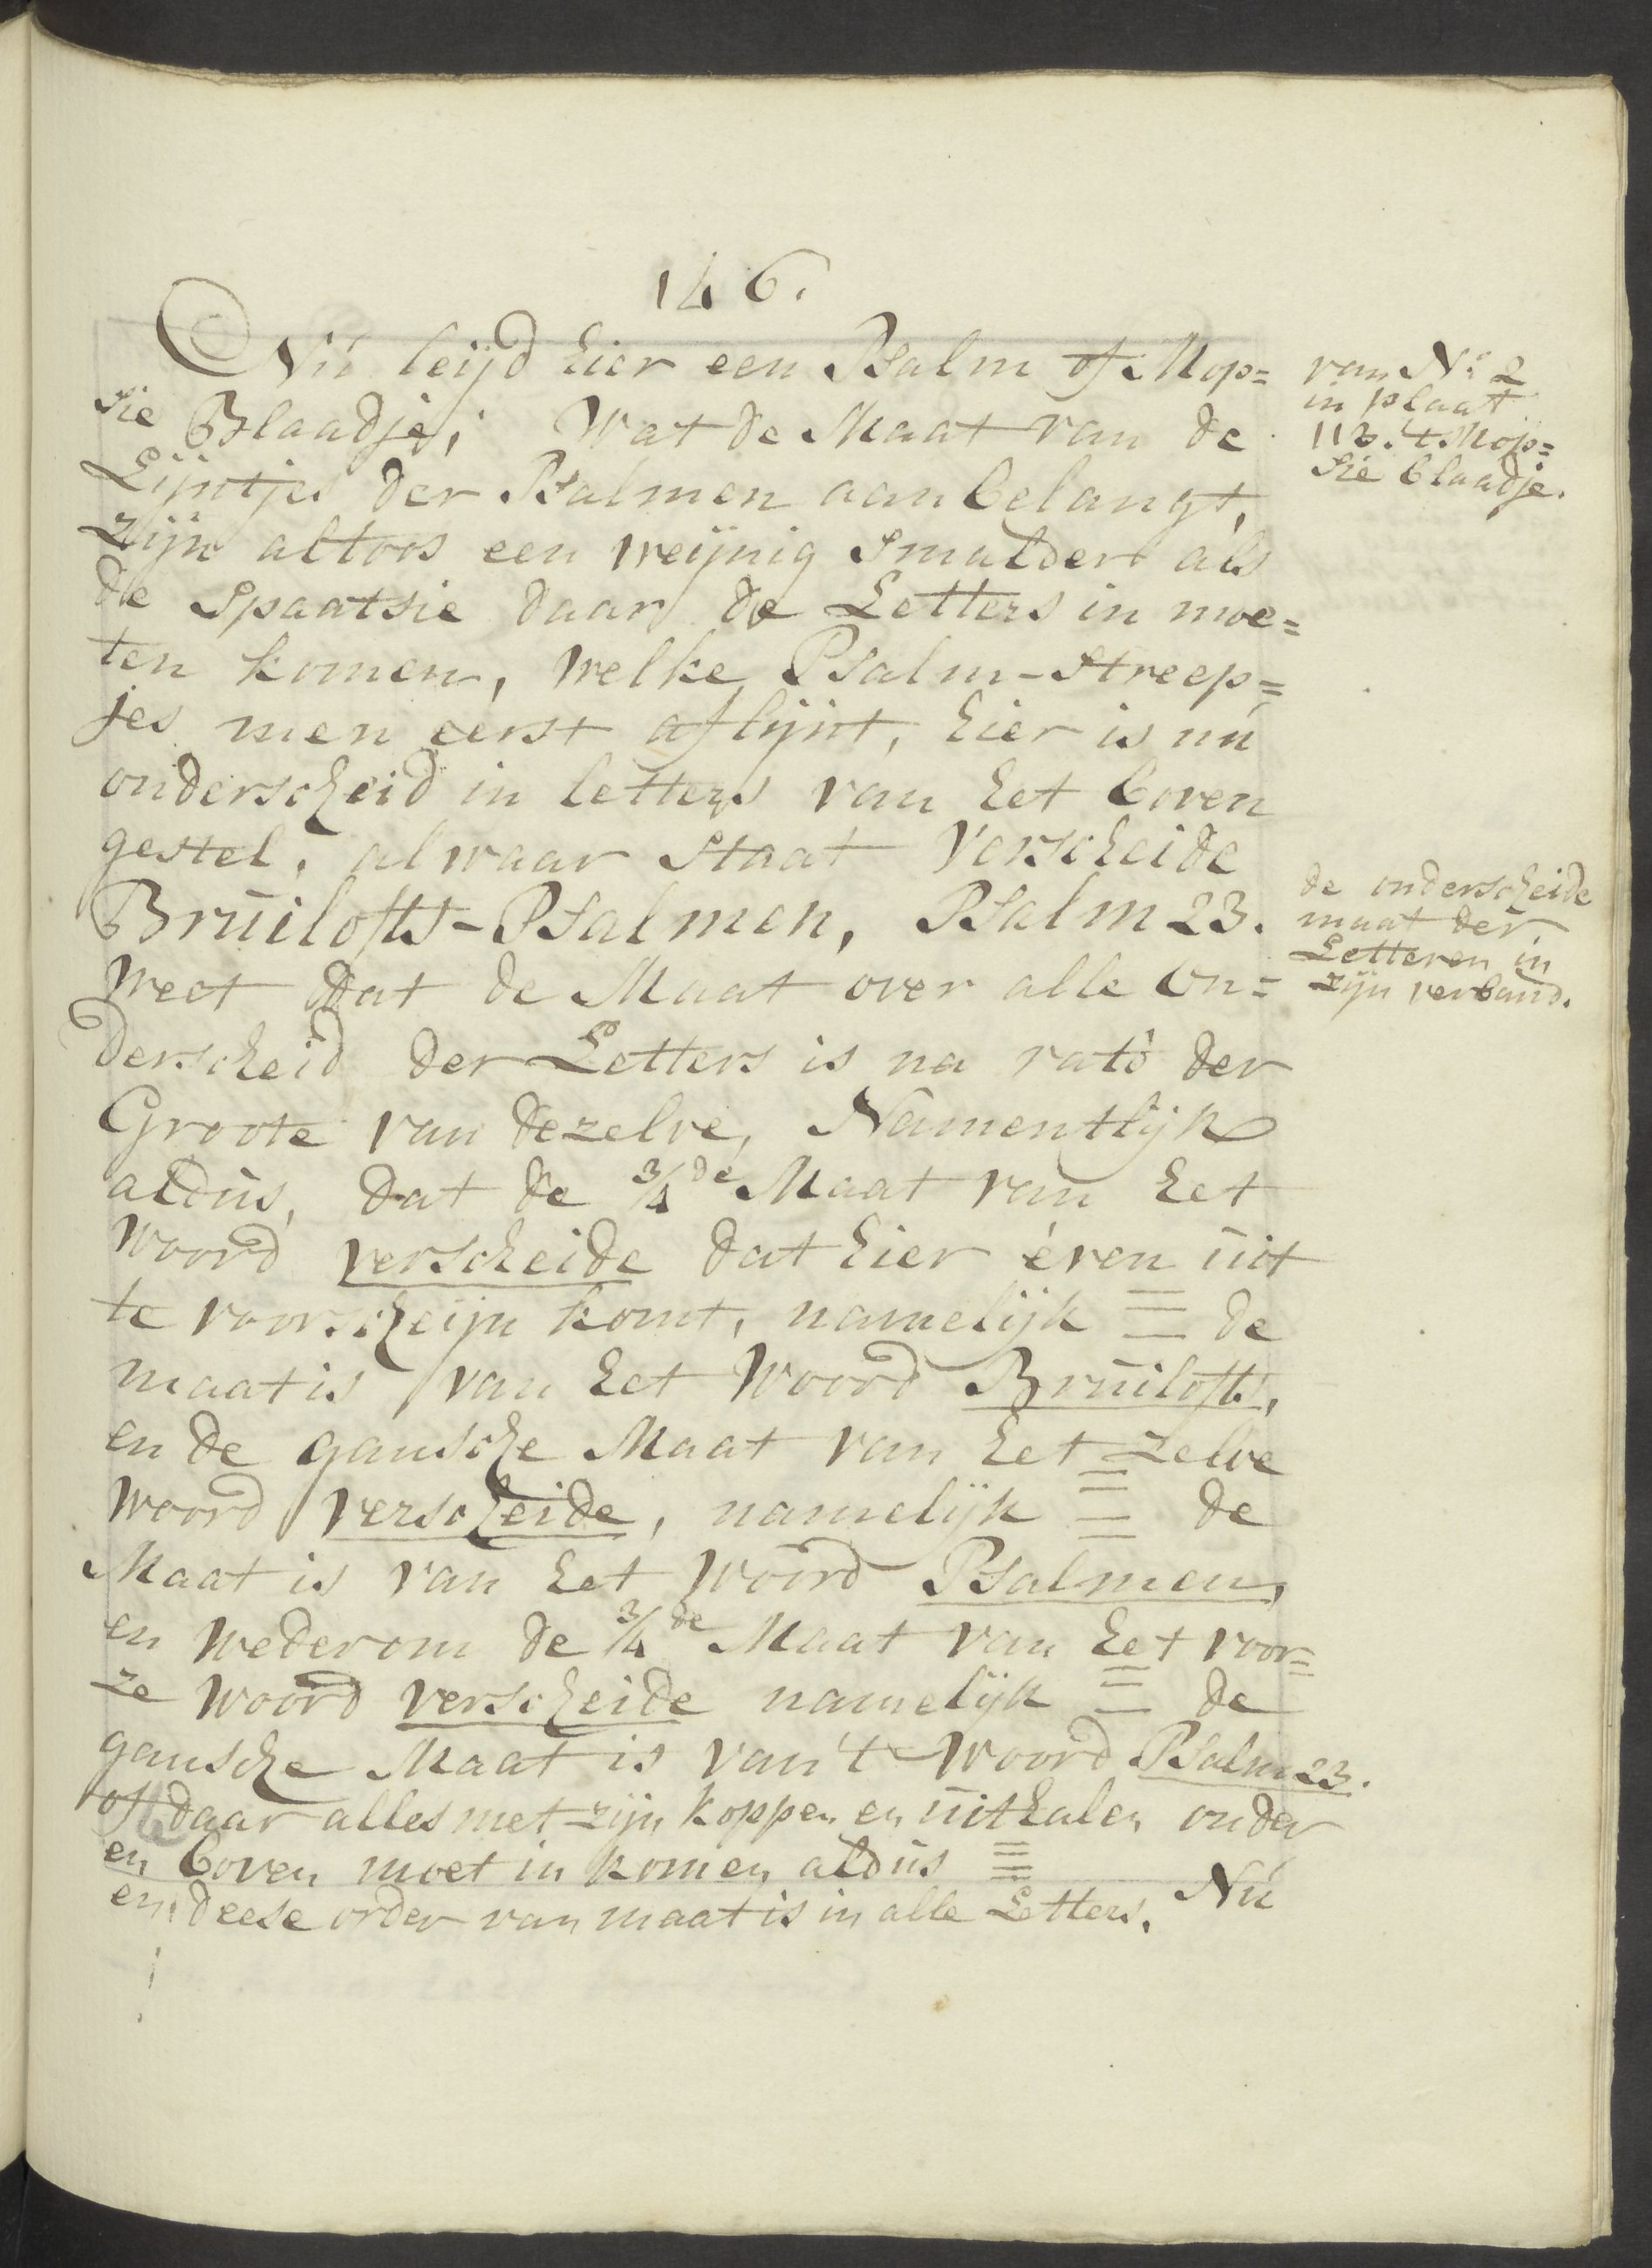 146.
Nú leijd hier een Psalm of Mop=
sie Blaadje; Wat de Maat van de
Lijntjes der Psalmen aanbelangt,
zijn altoos een weijnig Smalder als
de Spaatsie daar de Letters in moe=
ten komen, welke Psalm-Streep=
jes men eerst aflijnt, hier is nú
onderscheid in letters van het boven
gestel, alwaar Staat Verscheide
Brúilofts-Psalmen, Psalm 23.
Weet dat de Maat over alle On=
derscheid der Letters is na rato der
Groote van dezelve, Namentlijk
aldús, dat de 3/4de Maat van het
Woord verscheide dat hier éven úit
te voorscheijn komt, namelijk ☰ de
maat is van het Woord Brúilofts,
en de gansche Maat van het zelve
Woord verscheide, namelijk ☰ de
Maat is van het Woord Psalmen,
en wederom de 3/4de Maat van het voor=
ze woord verscheide namelijk ☰ de
gansche Maat is van 't Woord Psalm 23.
of daar alles met zijn koppen en úithalen onder
en boven moet in komen aldús ☰
en deese order van maat is in alle Letters. Nú
van No. 2
in plaat
113. 't Mop=
sie blaadje.
de onderscheide
maat der
Letteren in
zijn verband.